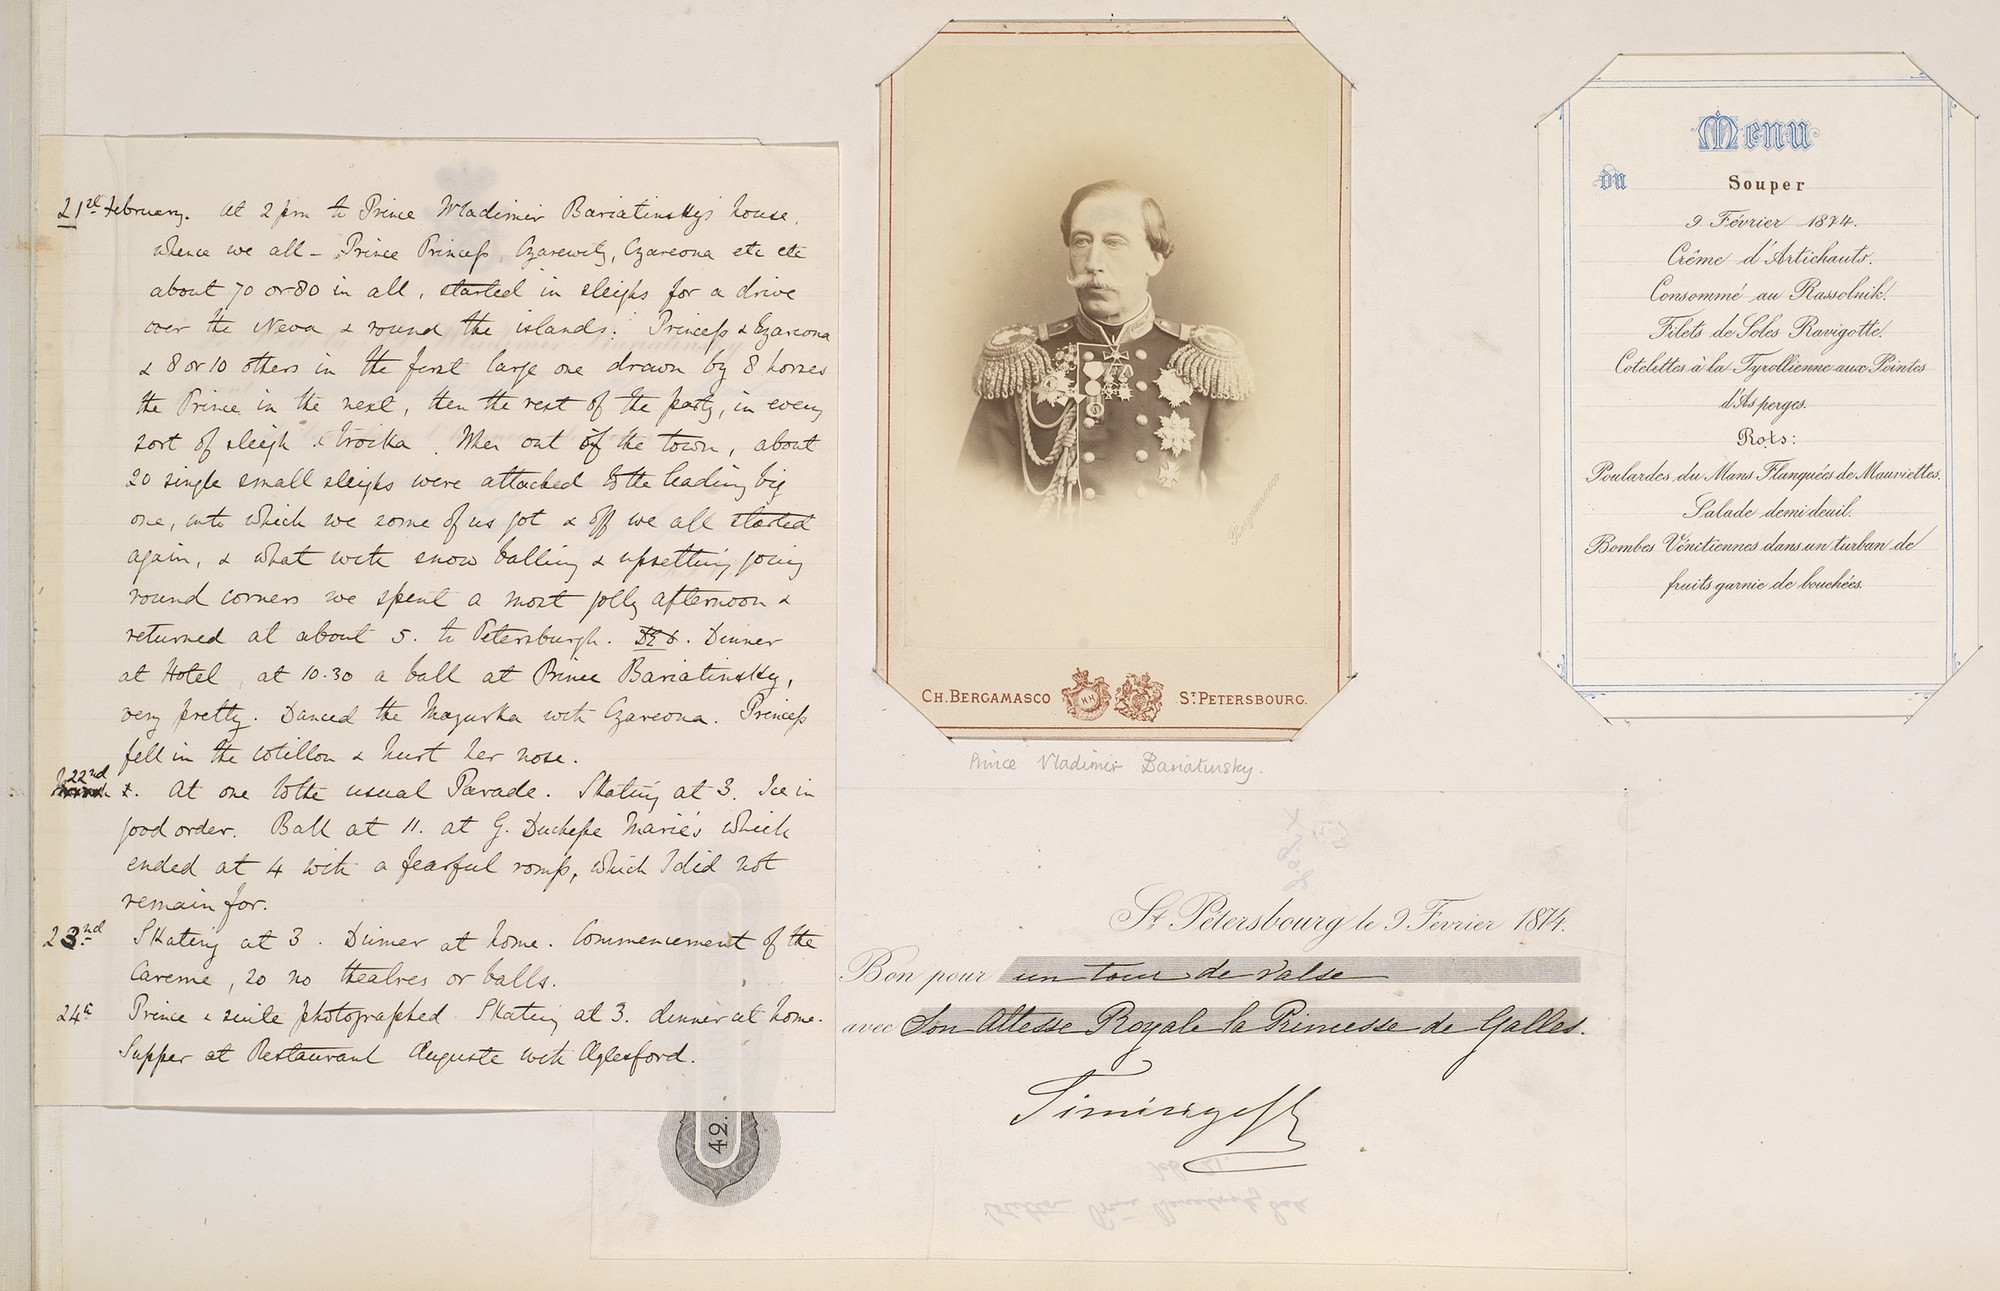 21st February. At 2 pm to Prince Wladimir Bariatinsky's house,
whence we all – Prince Princess, Czarewitz, Czareona etc etc
about 70 or 80 in all, started in sleighs for a drive
over the Neva & round the islands. Princess & Czareona
& 8 or 10 others in the first large one drawn by 8 horses
the Prince in the next, then the rest of the party, in every
sort of sleigh & troika. When out of the town, about
20 single small sleighs were attached to the leading big
one, into which we some of us got & off we all started
again, & what with snow balling & upsetting going
round corners we spent a most jolly afternoon &
returned at about 5. to Petersburgh. Dinner
at Hotel, at 10.30 a ball at Prince Bariatinsky,
very pretty. Danced the Mazurka with Czareona. Princess
fell in the cotillon & hurt her nose.
22nd At one to the usual Parade. Skating at 3. Ice in
good order. Ball at 11. at G. Duchesse Marie's which
ended at 4 with a fearful romp, which I did not
remain for.
23nd Skating at 3. Dinner at home. Commencement of the
Careme, so no theatres or balls.
24th Prince & suite photographed Skating at 3. dinner at home.
Supper at Restaurant Auguste with Aylesford.
Bergamasco
CH. BERGAMASCO ST PETERSBOURG.
Prince Vladimir Bariatinsky.
Menu
du Souper
9 Février 1874.
Crême d'Artichauts.
Consommé au Rassolnik.
Filets de Soles Ravigotte.
Cotelettes à la Tyrollienne aux Pointes
d'Asperges.
Rots:
Poulardes du Mans Flanquées de Mauviettes.
Salade demi deuil.
Bombes Vénitiennes dans un turban de
fruits garnie de bouchées.
St. Pétersbourg le 9 Fevrier 1874.
Bon pour un tour de valse
avec Son Altesse Royale la Princesse de Galles.
42.